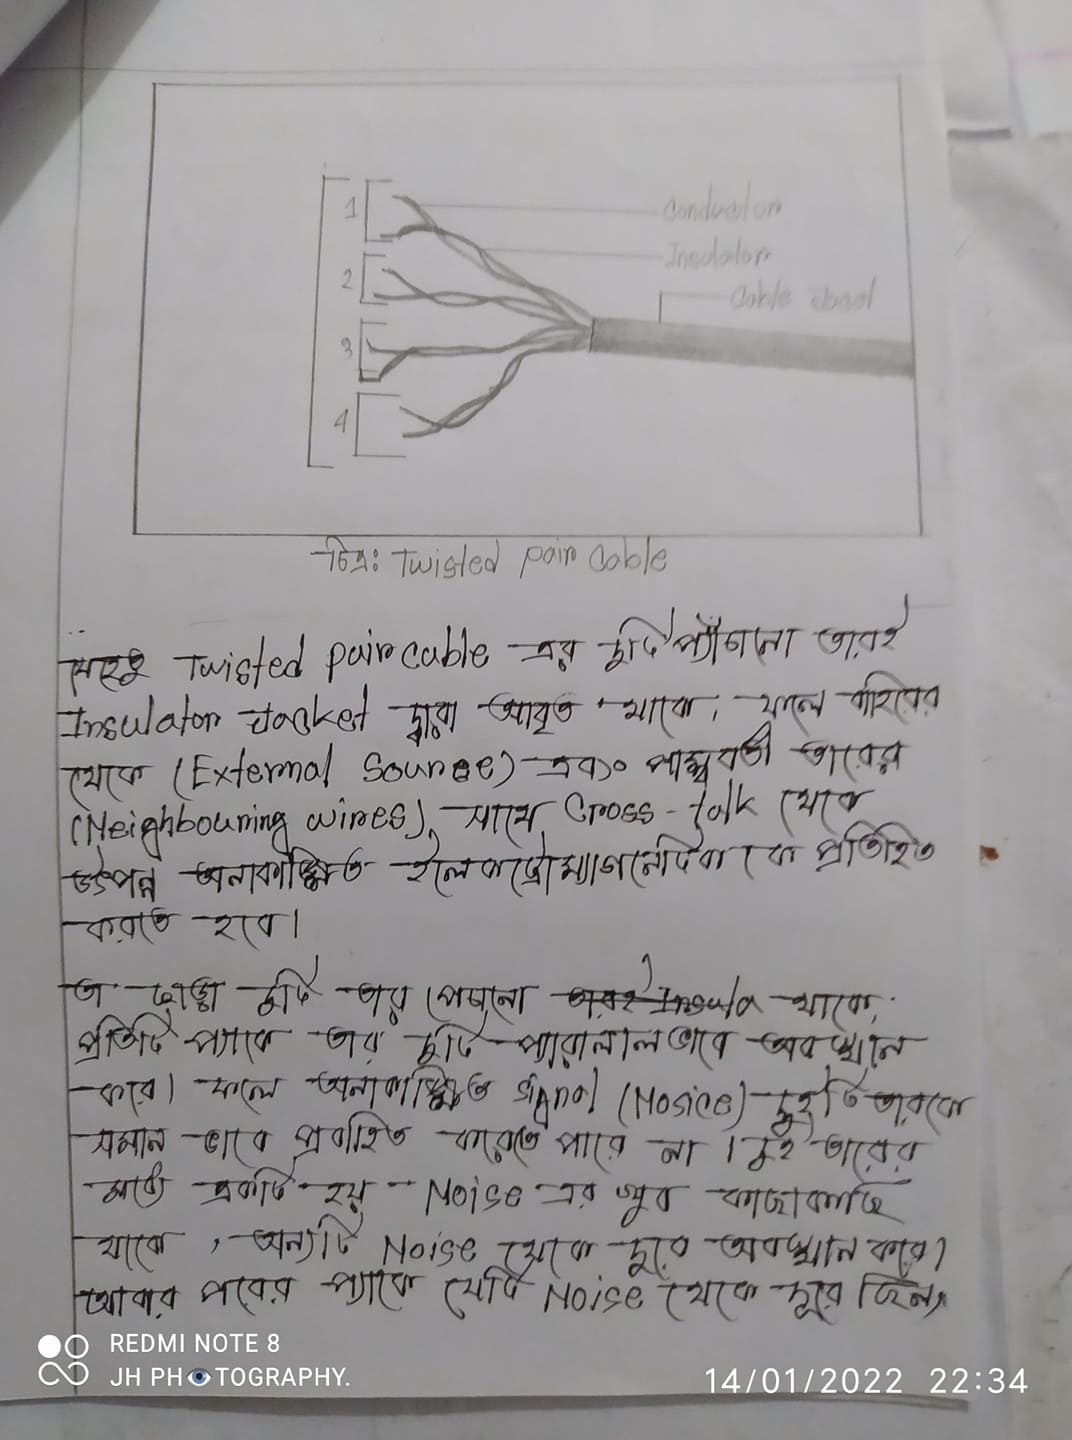 1
Conductor
Insulator
2
Cable
3
4
চিত্র: Twisted pair Cable
Twisted pair cable এর দুটি প্যাঁচানো তারই
Insulator Jacket দ্বারা আবৃত থাকে। ফলে বাহিরের
থেকে (External Source) এবং পার্শ্ববর্তী তারের
(Neighbouring wires), সাথে Cross-talk থেকে
উৎপন্ন অনাকাঙ্ক্ষিত ইলেকট্রোম্যাগনেটিক কে প্রতিহিত
করতে হবে।
তা ছাড়া দুটি তার পেচানো থাকে।
প্রতিটি প্যাকে তার দুটি প্যারালালভাবে অবস্থান
করে। ফলে অনাকাঙ্ক্ষিত Signal (Nosice) দুইটি তারকে
সমান ভাবে প্রবাহিত করতে পারে না। দুই তারের
মধ্যে একটি হয় Noise এর খুব কাছাকাছি
থাকে, অন্যটি Noise থেকে দুরে অবস্থান করে।
আবার পরের প্যাকে যেটি Noise থেকে দূরে ছিল,
REDMI NOTE 8
JH PHOTOGRAPHY.
14/01/2022 22:34